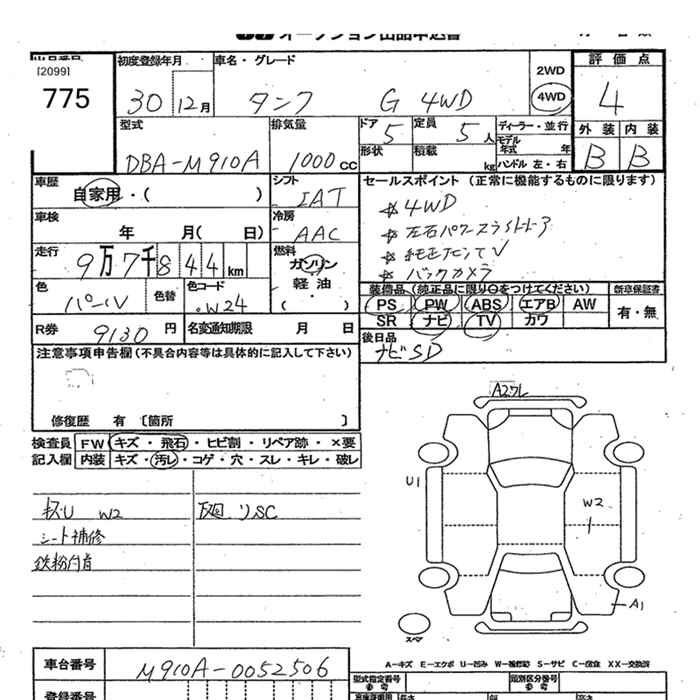 オークション出品申込書
出品番号
[2099]
775
初度登録年月
30 12月
車名・グレード
タンク G 4WD
2WD
4WD
評価点
4
外装 内装
B B
型式
DBA-M910A
排気量
1000 CC
ドア 5
定員 5人
形状
積載 kg
ディーラー・並行
モデル年式 年
ハンドル 左・右
車歴
自家用・( )
シフト
IAT
車検
年 月( 日)
冷房
AAC
走行
9万7千844km
燃料
ガソリン
軽油・
( )
色
パール
色替
色コード
W24
R券
9130円
名変通知期限 月 日
セールスポイント (正常に機能するものに限ります)
4WD
左右パワースライドドア
純正ナビTV
バックカメラ
装備品(純正品に限り○をつけてください)
PS PW ABS エアB AW
SR ナビ TV カワ
新車保証書
有・無
後日品
ナビSD
注意事項申告欄(不具合内容等は具体的に記入して下さい)
修復歴 有 〔箇所 〕
検査員
記入欄
FW キズ・飛石・ヒビ割・リペア跡・×要
内装 キズ・汚レ・コゲ・穴・スレ・キレ・破レ
キズU W2
シート補修
鉄粉内有
下廻リSC
A2フレ
U1
W2
A1
スペア
A-キズ E-エクボ U-凹み W-補修跡 S-サビ C-腐食 XX-交換済
車台番号
M910A-0052506
登録番号
型式指定番号
参考
類別区分番号
参考